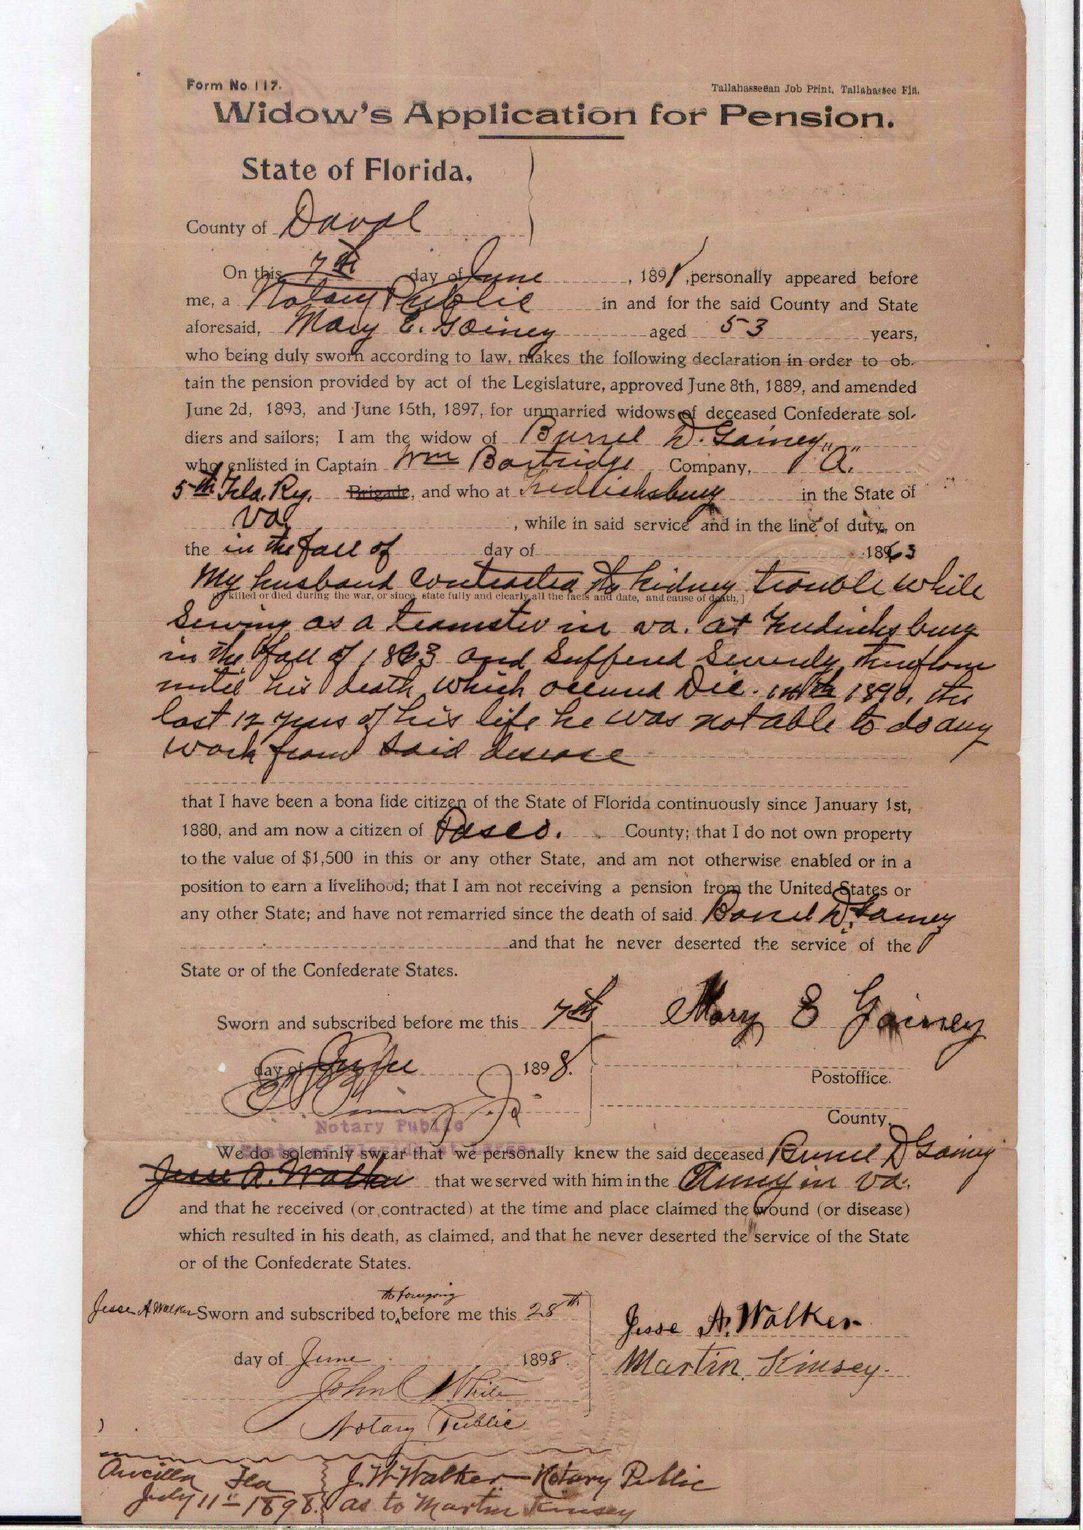 Form No 117.
Tallahasseean Job Print, Tallahassee Fla.
Widow's Application for Pension.
State of Florida,
County of Duval
On this 7th day of June, 1898, personally appeared before
me, a Notary Public in and for the said County and State
aforesaid, Mary E. Gainey aged 53 years,
who being duly sworn according to law, makes the following declaration in order to ob-
tain the pension provided by act of the Legislature, approved June 8th, 1889, and amended
June 2d, 1893, and June 15th, 1897, for unmarried widows of deceased Confederate sol-
diers and sailors; I am the widow of Burrel D. Gainey
who enlisted in Captain Wm Company, "A"
5th Fla. Rg. Brigade, and who at Fredricksburg in the State of
Va , while in said service and in the line of duty, on
the in the fall of day of 1863
My husband contracted kidney trouble while
[If killed or died during the war, or since, state fully and clearly all the facts and date, and cause of death.]
serving as a teamster in va. at Fredricksburg
in the fall of 1863 and suffered severely therefrom
until his death which occured Dec. 1890. the
last 12 years of his life he was not able to do any
work from said disease
that I have been a bona fide citizen of the State of Florida continuously since January 1st,
1880, and am now a citizen of Pasco. County; that I do not own property
to the value of $1,500 in this or any other State, and am not otherwise enabled or in a
position to earn a livelihood; that I am not receiving a pension from the United States or
any other State; and have not remarried since the death of said Burrel D. Gainey
and that he never deserted the service of the
State or of the Confederate States.
Sworn and subscribed before me this 7th Mary E Gainey
day of June 1898. Postoffice.
County.
Notary Public
State of Florida at Large.
We do solemnly swear that we personally knew the said deceased Burrel D Gainey
Jesse A. Walker that we served with him in the Army in Va.
and that he received (or contracted) at the time and place claimed the wound (or disease)
which resulted in his death, as claimed, and that he never deserted the service of the State
or of the Confederate States.
the foregoing
Jesse A Walker Sworn and subscribed to before me this 28th Jesse A. Walker
day of June 1898. Martin Kinsey.
John C White
Notary Public
Aucilla Fla J. W. Walker Notary Public
July 11th 1898. as to Martin Kinsey